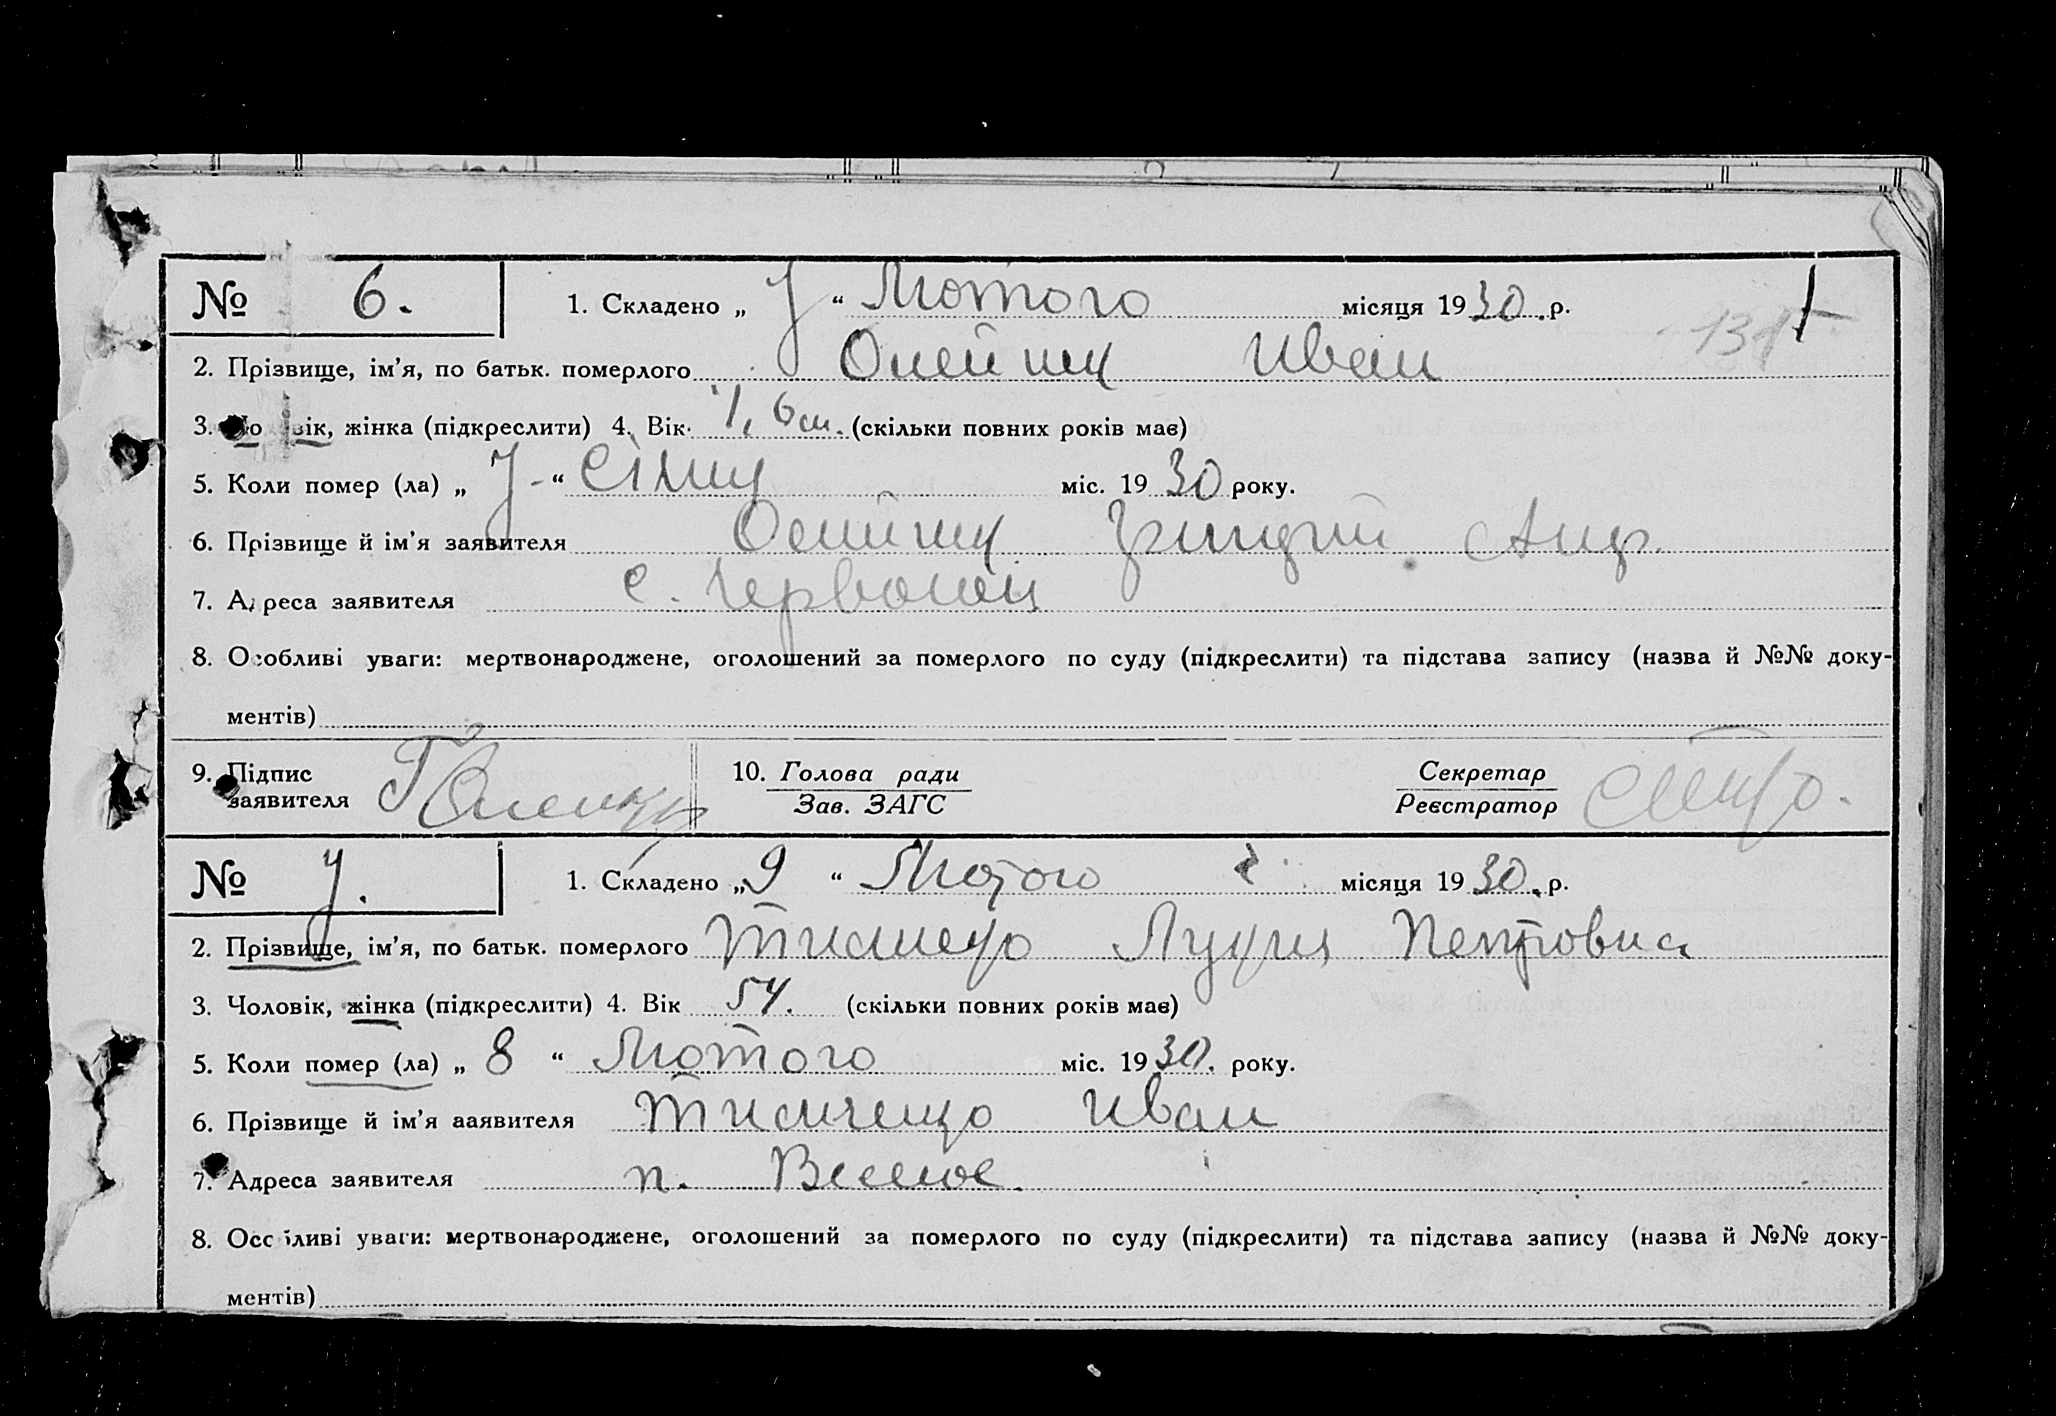 № 6. 1. Складено „ 7 “ Лютого місяця 1930. р.
2. Прізвище, ім'я, по батьк. померлого Олейник Иван
3. Чоловік, жінка (підкреслити) 4. Вік 1, 6 м. (скільки повних років має)
5. Коли помер (ла) „ 7 - “ Січня міс. 19 30 року.
6. Прізвище й ім'я заявителя Олейник Андр.
7. Адреса заявителя с. Червонец
8. Особливі уваги: мертвонароджене, оголошений за померлого по суду (підкреслити) та підстава запису (назва й №№ доку-
ментів)
9. Підпис заявителя 10. Голова ради Зав. ЗАГС Секретар Реєстратор
№ 7. 1. Складено „ 9 “ Лютого місяця 1930. р.
2. Прізвище, ім'я, по батьк. померлого Тимченко Лукия Петровна
3. Чоловік, жінка (підкреслити) 4. Вік 54. (скільки повних років має)
5. Коли помер (ла) „ 8 “ Лютого міс. 1930. року.
6. Прізвище й ім'я ааявителя Тимченко Иван
7. Адреса заявителя п.
8. Особливі уваги: мертвонароджене, оголошений за померлого по суду (підкреслити) та підстава запису (назва й №№ доку-
ментів)